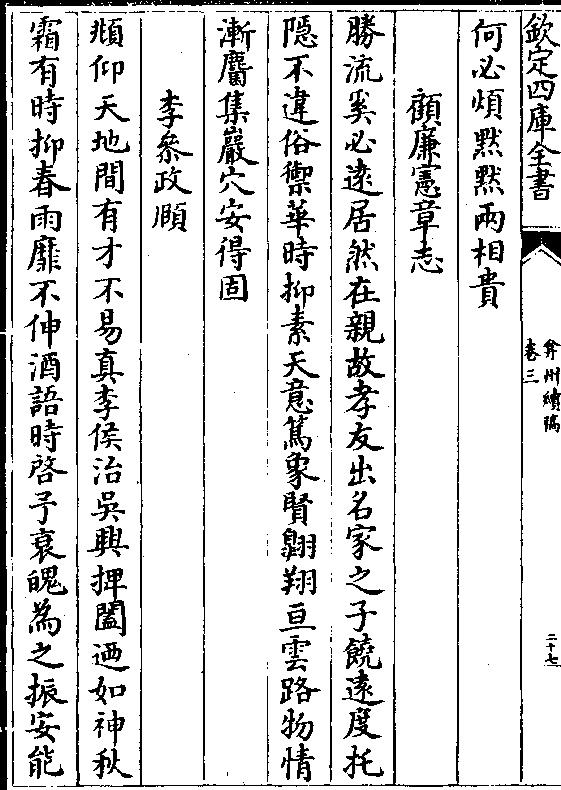 欽定四庫全書
弇州續稿
卷三
二十七
何必煩黙黙兩相貴
顧廉憲章志
勝流奚必逺居然在親故孝友出名家之子饒逺度托
隠不違俗禦華時抑素天意篤象賢翺翔亘雲路物情
漸麏集巖穴安得固
李叅政頥
頫仰天地間有才不易真李侯治吳興押闔迺如神秋
霜有時抑春雨靡不伸酒語時啓予衰魄為之振安能